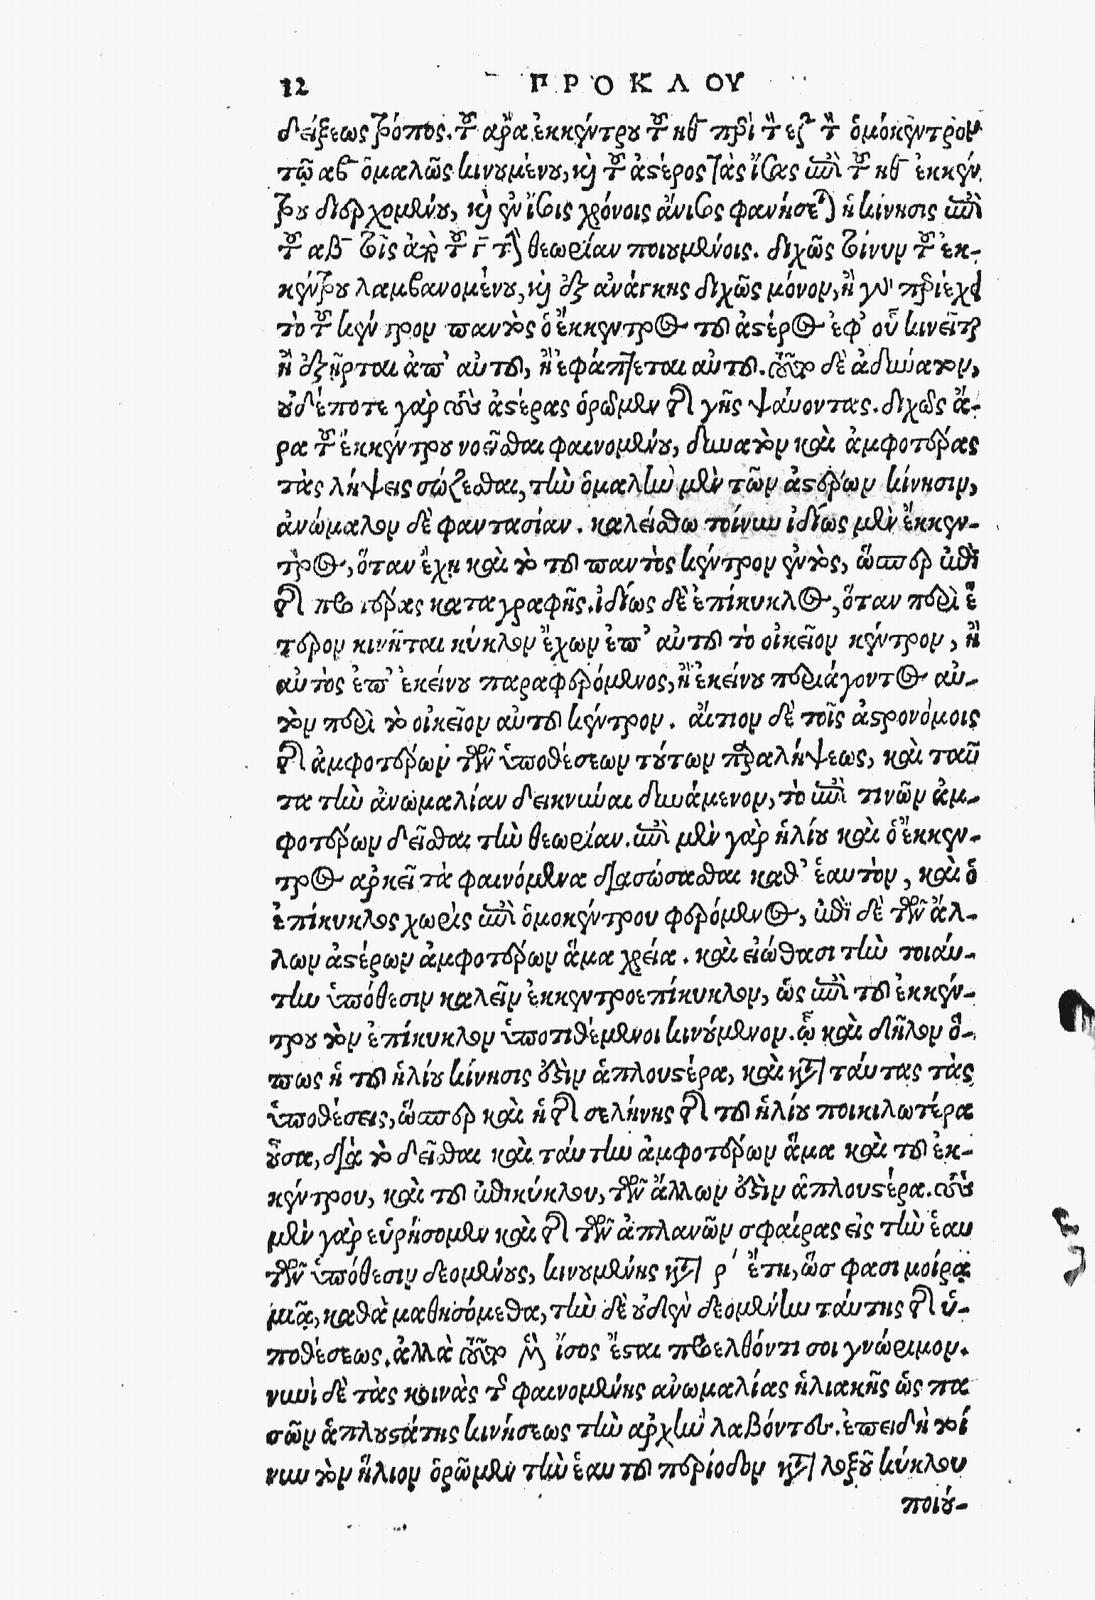 12 ΠΡΟΚΛΟΥ
δείξεως τρόπος. τοῦ ἄρα ἐκκέντρου τοῦ ηθ περὶ τὸ εζ τὸ ὁμόκεντρον
τῷ αβ ὁμαλῶς κινουμένου, καὶ τοῦ ἀστέρος τὰς ἴσας ἐπὶ τοῦ ηθ ἐκκέν
τρου διερχομένου, καὶ ἐν ἴσοις χρόνοις ἄνισος φανήσεται ἡ κίνησις ἐπὶ
τοῦ αβ τοῖς ἀπὸ τοῦ γ τὴν θεωρίαν ποιουμένοις. διχῶς τοίνυν τοῦ ἐκ-
κέντρου λαμβανομένου, καὶ ἐξ ἀνάγκης διχῶς μόνον, ἢ γὰρ περιέχει
τὸ τοῦ κέντρον παντὸς ὁ ἔκκεντρος τοῦ ἀστέρος ἐφ' οὗ κινεῖται
ἢ ἐξῄρται ἀπ' αὐτοῦ, ἢ ἐφάπτεται αὐτοῦ. τοῦτο δὲ ἀδύνατον,
οὐδέποτε γὰρ τοὺς ἀστέρας ὁρῶμεν τῆς γῆς ψαύοντας. διχῶς ἄ-
ρα τοῦ ἐκκέντρου νοεῖσθαι φαινομένου, δυνατὸν καὶ ἀμφοτέρας
τὰς λήψεις σώζεσθαι, τὴν ὁμαλὴν μὲν τῶν ἀστέρων κίνησιν,
ἀνώμαλον δὲ φαντασίαν. καλείσθω τοίνυν ἰδίως μὲν ἔκκεν-
τρος, ὅταν ἔχῃ καὶ τὸ τοῦ παντὸς κέντρον ἐντὸς, ὥσπερ ἐπὶ
τῆς προτέρας καταγραφῆς. ἰδίως δὲ ἐπίκυκλος, ὅταν περὶ ἕ
τερον κινῆται κύκλον ἔχων ἐπ' αὐτοῦ τὸ οἰκεῖον κέντρον, ἢ
αὐτὸς ἐπ' ἐκείνου παραφερόμενος, ἢ ἐκείνου περιάγοντος αὐ-
τὸν περὶ τὸ οἰκεῖον αὐτοῦ κέντρον. αἴτιον δὲ τοῖς ἀστρονόμοις
τῆς ἀμφοτέρων τῶν ὑποθέσεων τούτων παραλήψεως, καὶ ταῦ
τα τὴν ἀνωμαλίαν δεικνύναι δυνάμενον, τὸ ἐπὶ τινῶν ἀμ-
φοτέρων δεῖσθαι τὴν θεωρίαν. ἐπὶ μὲν γὰρ ἡλίου καὶ ὁ ἔκκεν-
τρος ἀρκεῖ τὰ φαινόμενα διασώσασθαι καθ' ἑαυτὸν, καὶ ὁ
ἐπίκυκλος χωρὶς ἐπὶ ὁμοκέντρου φερόμενος, ἐπὶ δὲ τῶν ἄλ-
λων ἀστέρων ἀμφοτέρων ἅμα χρεία. καὶ εἰώθασι τὴν τοιάυ-
την ὑπόθεσιν καλεῖν ἐκκεντροεπίκυκλον, ὡς ἐπὶ τοῦ ἐκκέν-
τρου τὸν ἐπίκυκλον ὑποτιθέμενοι κινούμενον. ᾧ καὶ δῆλον ὅ-
πως ἡ τοῦ ἡλίου κίνησις ἐστὶν ἁπλουστέρα, καὶ κατὰ τάυτας τὰς
ὑποθέσεις, ὥσπερ καὶ ἡ τῆς σελήνης τῆς τοῦ ἡλίου ποικιλωτέρα
οὖσα, διὰ τὸ δεῖσθαι καὶ τάυτην ἀμφοτέρων ἅμα καὶ τοῦ ἐκ-
κέντρου, καὶ τοῦ ἐπικύκλου, τῶν ἄλλων ἐστὶν ἁπλουστέρα. τοὺς
μὲν γὰρ εὑρήσομεν καὶ τῆς τῶν ἀπλανῶν σφαίρας εἰς τὴν ἑαυ
τῶν ὑπόθεσιν δεομένους, κινουμένης κατὰ ρ' ἔτη, ὥς φασι μοίρᾳ
μιᾷ, καθὰ μαθησόμεθα, τὴν δὲ οὐδὲν δεομένην τάυτης τῆς ὑ-
ποθέσεως. ἀλλὰ τοῦτο μὲν ἴσος ἔσται προελθόντι σοι γνώριμον.
νυνὶ δὲ τὰς κοινὰς τῆς φαινομένης ἀνωμαλίας ἡλιακῆς ὡς πα
σῶν ἁπλουστάτης κινήσεως τὴν ἀρχὴν λαβόντες. ἐπειδὴ τοί
νυν τὸν ἥλιον ὁρῶμεν τὴν ἑαυτοῦ περίοδον κατὰ λοξοῦ κύκλου
ποιού-